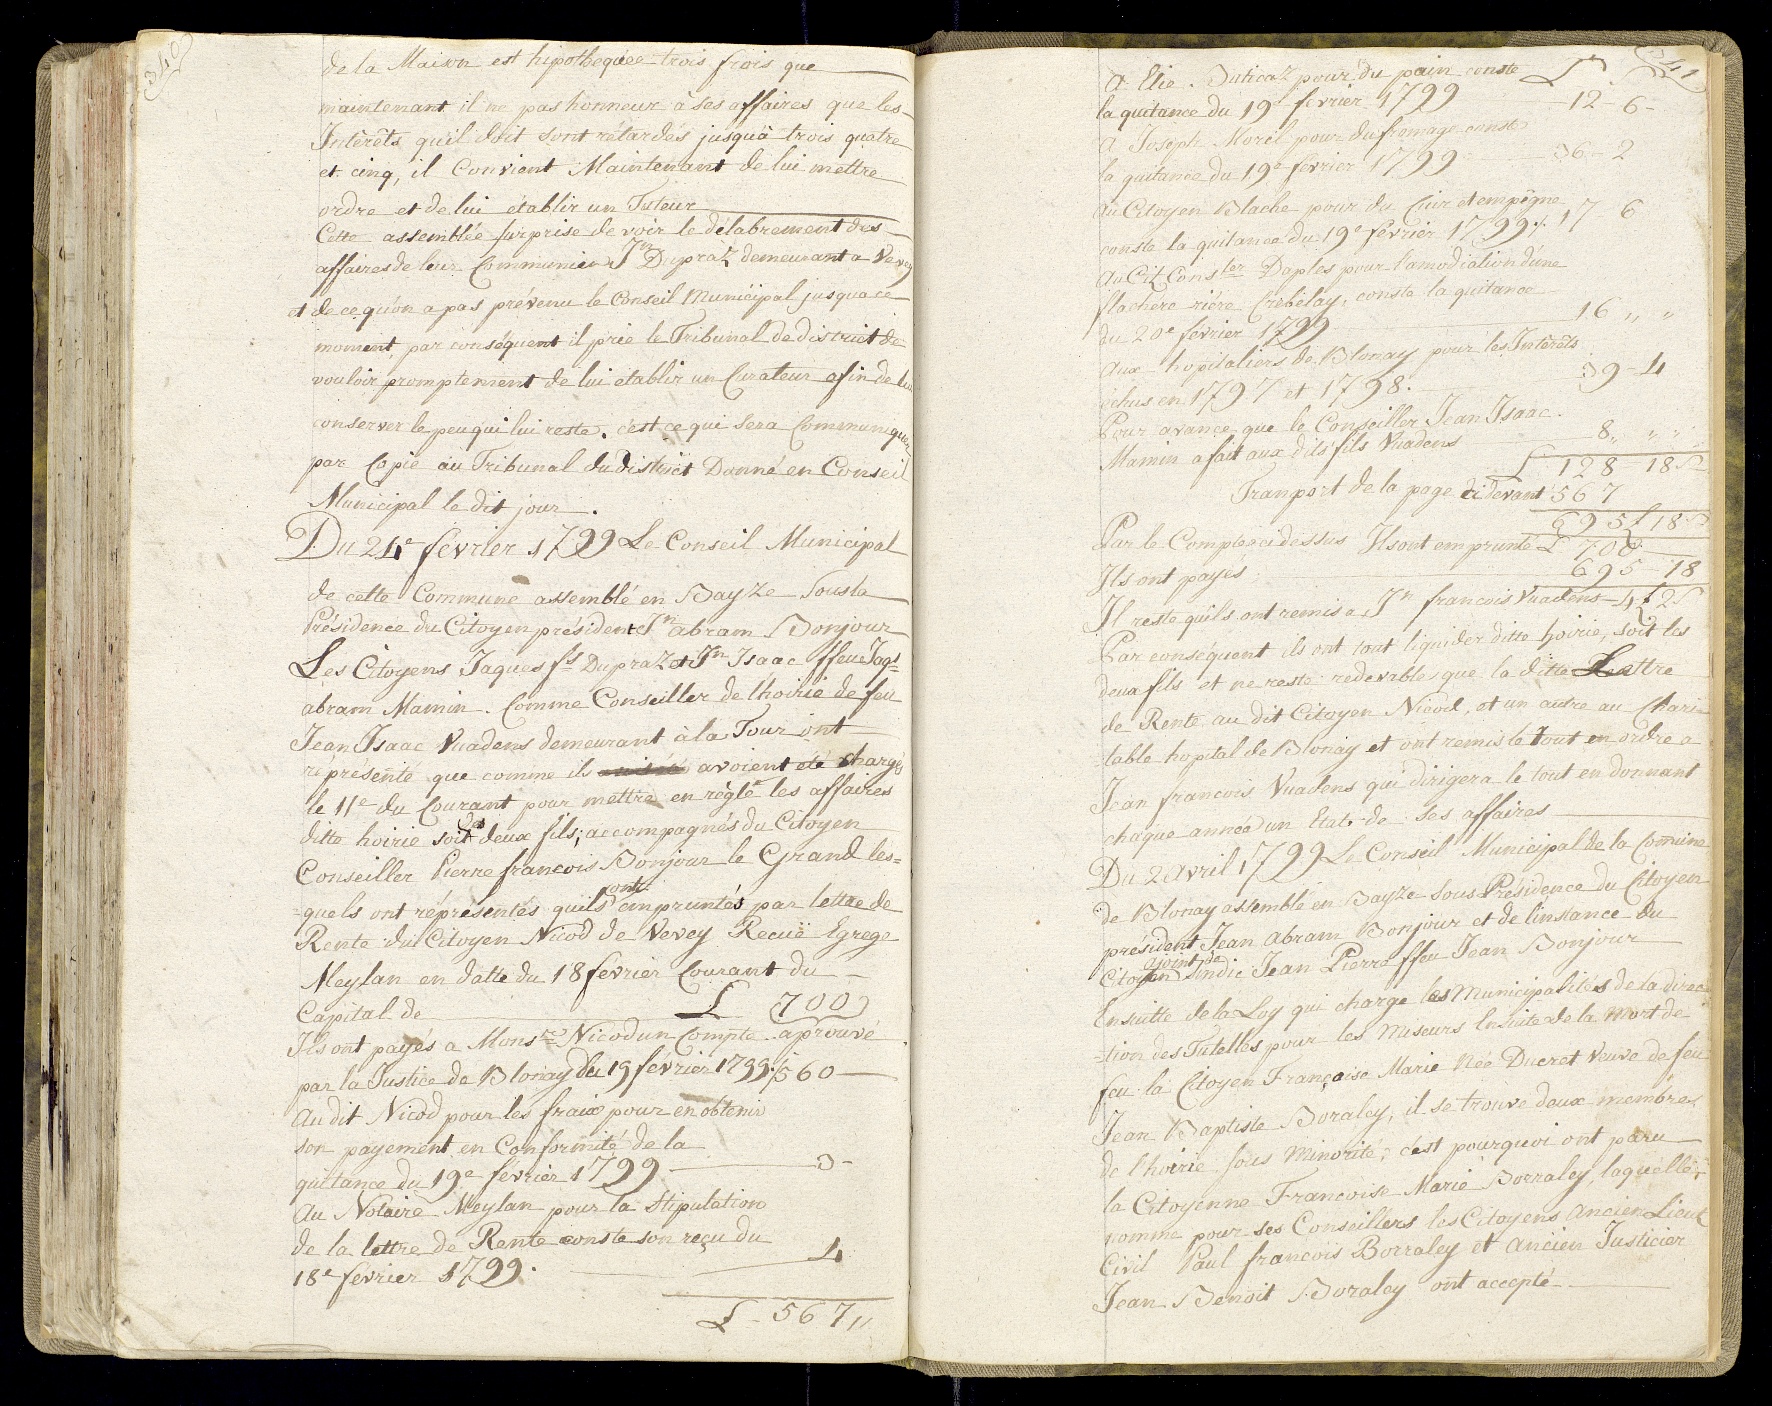 340
de la Maison est hipothequée trois frois que
maintenant il ne pas honneur à ses affaires que les
Intérêts qu'il doit sont rétardés jusqu'à trois quatre
et cinq, il Convient Maintenant de lui mettre
ordre et de lui établir un Tuteur
Cette assemblée surprise de voir le délabrement des
affaires de leur Communier Jn Dupraz demeurant a Vevey
et de ce qu'on a pas prévenu le Conseil Municipal jusqu'a ce
moment, par conséquent il prie le Tribunal de district de
vouloir promptement de lui établir un Curateur afin de lui
conserver le peu qui lui reste. c'est ce qui sera Communiquer
par Copie au Tribunal du District Donné en Conseil
Municipal le dit jour.
Du 24e fevrier 1799 Le Conseil Municipal
de cette Commune assemblé en Bayze Sousla
Présidence du Citoyen président Jn abram Bonjour
Les Citoyens Jaques fs Dupraz et Jn Isaac ffeu Jaqs
abram Mamin. Comme Conseiller de l'hoirie de feu
Jean Isaac Vuadens demeurant à la Tour ont
réprésenté que comme ils avoient été chargés
le 11e du Courant pour mettre en règle les affaires
ditte hoirie soit les deux fils; accompagnés du Citoyen
Conseiller Pierre francois Bonjour le Grand les=
=quels ont réprésentés quils ont empruntés par lettre de
Rente du Citoyen Nicod de Vevey Recuë Egrege
Meylan en datte du 18 fevrier Courant du
Capital de L 700
Ils ont payés a Monsr Nicod un Compte aprouvé
par la Justice de Blonay du 19 février 1799. 560
Au dit Nicod pour les fraix pour en obtenir
son payement en Conformité de la
quitance du 19e février 1799 3
Au Notaire Meylan pour la Stipulation
de la lettre de Rente conste son reçu du
18e février 1799. 4
L 567 "
341
A Elie Duticaz pour du pain conste L
la quitance du 19e fevrier 1799 12 6
A Joseph Morel pour du fromage conste
la quitance du 19e février 1799 36 2
Au Citoyen Blache pour du Cuir et empigne
conste la quitance du 19e février 1799. 17 6
Au Cit Conser Daples pour l'amodiation d'une
flachere riére Crebelay, conste la quitance
du 20e février 1799 16 " "
Aux hopitaliers de Blonay pour les Intérêts
échus en 1797 et 1798. 39 4
Pour avance que le Conseiller Jean Isaac
Mamin a fait aux dits fils Vuadens 8 " " "
L 128 18 S
Tranport de la page ci devant 567
695 18 S
Par le Compte ci dessus Ils ont emprunté L 700
Ils ont payés 695 18
Il reste qu'ils ont remis a Jn francois Vuadens 4 2 S
Par conséquent ils ont tout liquider ditte hoirie, soit les
deux fils et ne reste redevables que la ditte Lettre
de Rente au dit Citoyen Nicod, et un autre au Chari
table hopital de Blonay et ont remis le Tout en ordre a
Jean francois Vuadens qui dirigera le tout en donnant
chaque année un Etat de ses affaires
Du 2 Avril 1799 Le Conseil Municipal de la Comune
de Blonay assemblé en Bayze sous Présidence du Citoyen
président Jean Abram Bonjour et de l'instance du
Citoyen joint de Sindic Jean Pierre ffeu Jean Bonjour
Ensuitte de la Loy qui charge les Municipalités de la direc
=tion des Tutelles pour les Miseurs Ensuite de la mort de
feu la Citoyen Françoise Marie Née Ducret Veuve de feu
Jean Baptiste Boraley, il se trouve deux membres
de l'hoirie sous Minorité, c'est pourquoi ont paru
la Citoyenne Francoise Marie Borraley, laquelle,
nomme pour ses Conseillers les Citoyens Ancien Lieut
Civil Paul francois Borraley et Ancien Justicier
Jean Benoit Boraley ont accepté